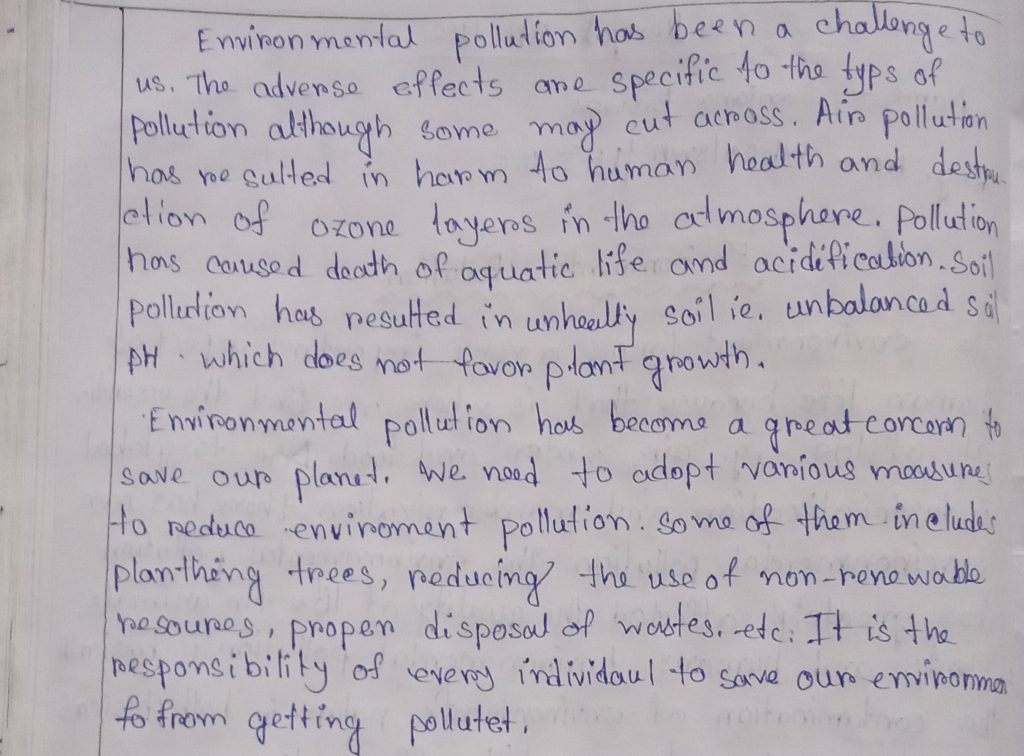 Environmental pollution has been a challenge to
us. The adverse effects are specific to the typs of
pollution although some may cut across. Air pollution
has resulted in harm to human health and destru-
ction of ozone layers in the atmosphere. Pollution
has caused death of aquatic life and acidification. Soil
pollution has resulted in unheally soil ie. unbalanced soil
pH . which does not favor plant growth.
Environmental pollution has become a great concern to
save our planet. We need to adopt various measures
to reduce enviroment pollution. Some of them includes
planthing trees, reducing the use of non-renewable
resoures, proper disposal of wastes. etc. It is the
responsibility of every individaul to save our environmen
to from getting pollutet.